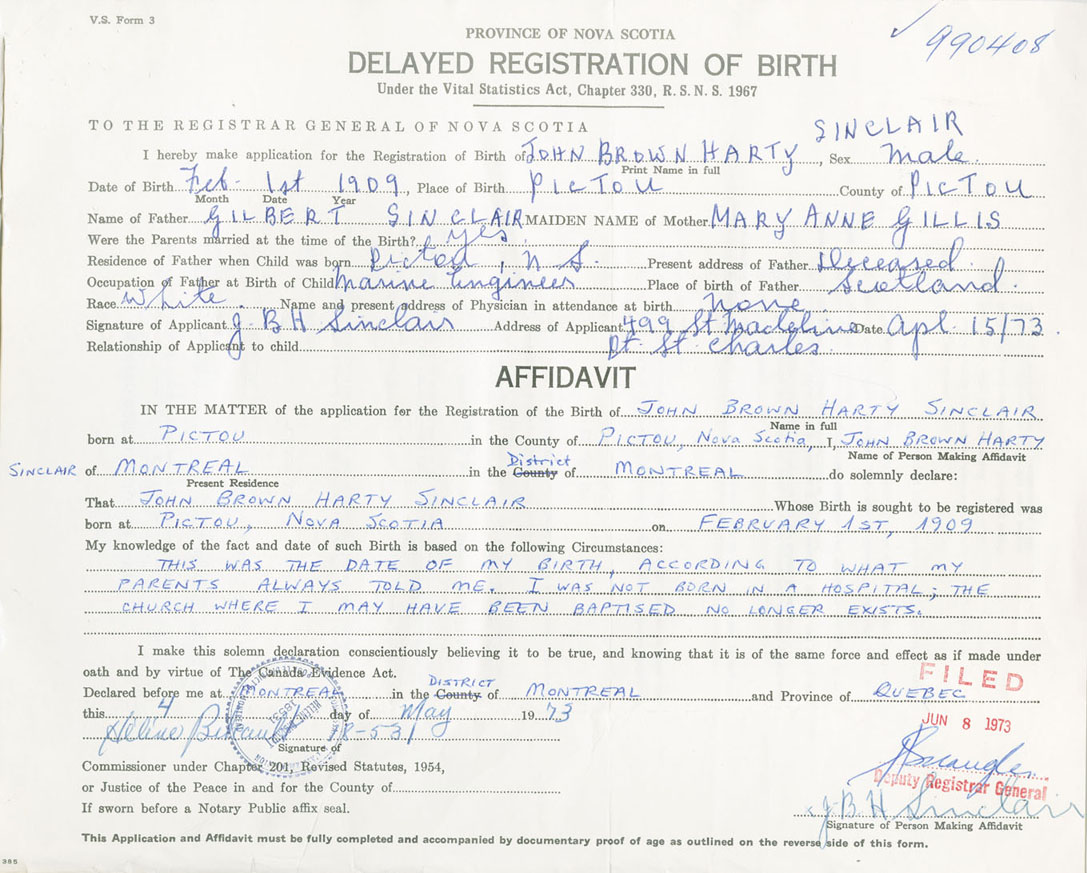 V.S. Form 3
✓ 990408
PROVINCE OF NOVA SCOTIA
DELAYED REGISTRATION OF BIRTH
Under the Vital Statistics Act, Chapter 330, R.S.N.S. 1967
TO THE REGISTRAR GENERAL OF NOVA SCOTIA
SINCLAIR
I hereby make application for the Registration of Birth of JOHN BROWN HARTY, Sex male.
Print Name in full
Date of Birth Feb. 1st 1909, Place of Birth PICTOU County of PICTOU
Month Date Year
Name of Father GILBERT SINCLAIR MAIDEN NAME of Mother MARY ANNE GILLIS
Were the Parents married at the time of the Birth? yes.
Residence of Father when Child was born Pictou, N S. Present address of Father Deceased.
Occupation of Father at Birth of Child Marine Engineer Place of birth of Father Scotland.
Race White. Name and present address of Physician in attendance at birth none
Signature of Applicant J. B H Sinclair Address of Applicant 499 St Madeline Date Apl. 15/73.
Relationship of Applicant to child Pt. St Charles.
AFFIDAVIT
IN THE MATTER of the application for the Registration of the Birth of JOHN BROWN HARTY SINCLAIR
Name in full
born at PICTOU in the County of PICTOU, NOVA SCOTIA, I, JOHN BROWN HARTY
Name of Person Making Affidavit
SINCLAIR of MONTREAL in the County District of MONTREAL do solemnly declare:
Present Residence
That JOHN BROWN HARTY SINCLAIR Whose Birth is sought to be registered was
born at PICTOU, NOVA SCOTIA on FEBRUARY 1ST, 1909
My knowledge of the fact and date of such Birth is based on the following Circumstances:
THIS WAS THE DATE OF MY BIRTH, ACCORDING TO WHAT MY
PARENTS ALWAYS TOLD ME. I WAS NOT BORN IN A HOSPITAL; THE
CHURCH WHERE I MAY HAVE BEEN BAPTISED NO LONGER EXISTS.
I make this solemn declaration conscientiously believing it to be true, and knowing that it is of the same force and effect as if made under
oath and by virtue of The Canada Evidence Act.
FILED
Declared before me at MONTREAL in the County DISTRICT of MONTREAL and Province of QUEBEC
this 4 day of May 1973
JUN 8 1973
Hélène
Signature of
Commissioner under Chapter 201, Revised Statutes, 1954,
Deputy Registrar General
or Justice of the Peace in and for the County of
J B H Sinclair
If sworn before a Notary Public affix seal.
Signature of Person Making Affidavit
This Application and Affidavit must be fully completed and accompanied by documentary proof of age as outlined on the reverse side of this form.
385